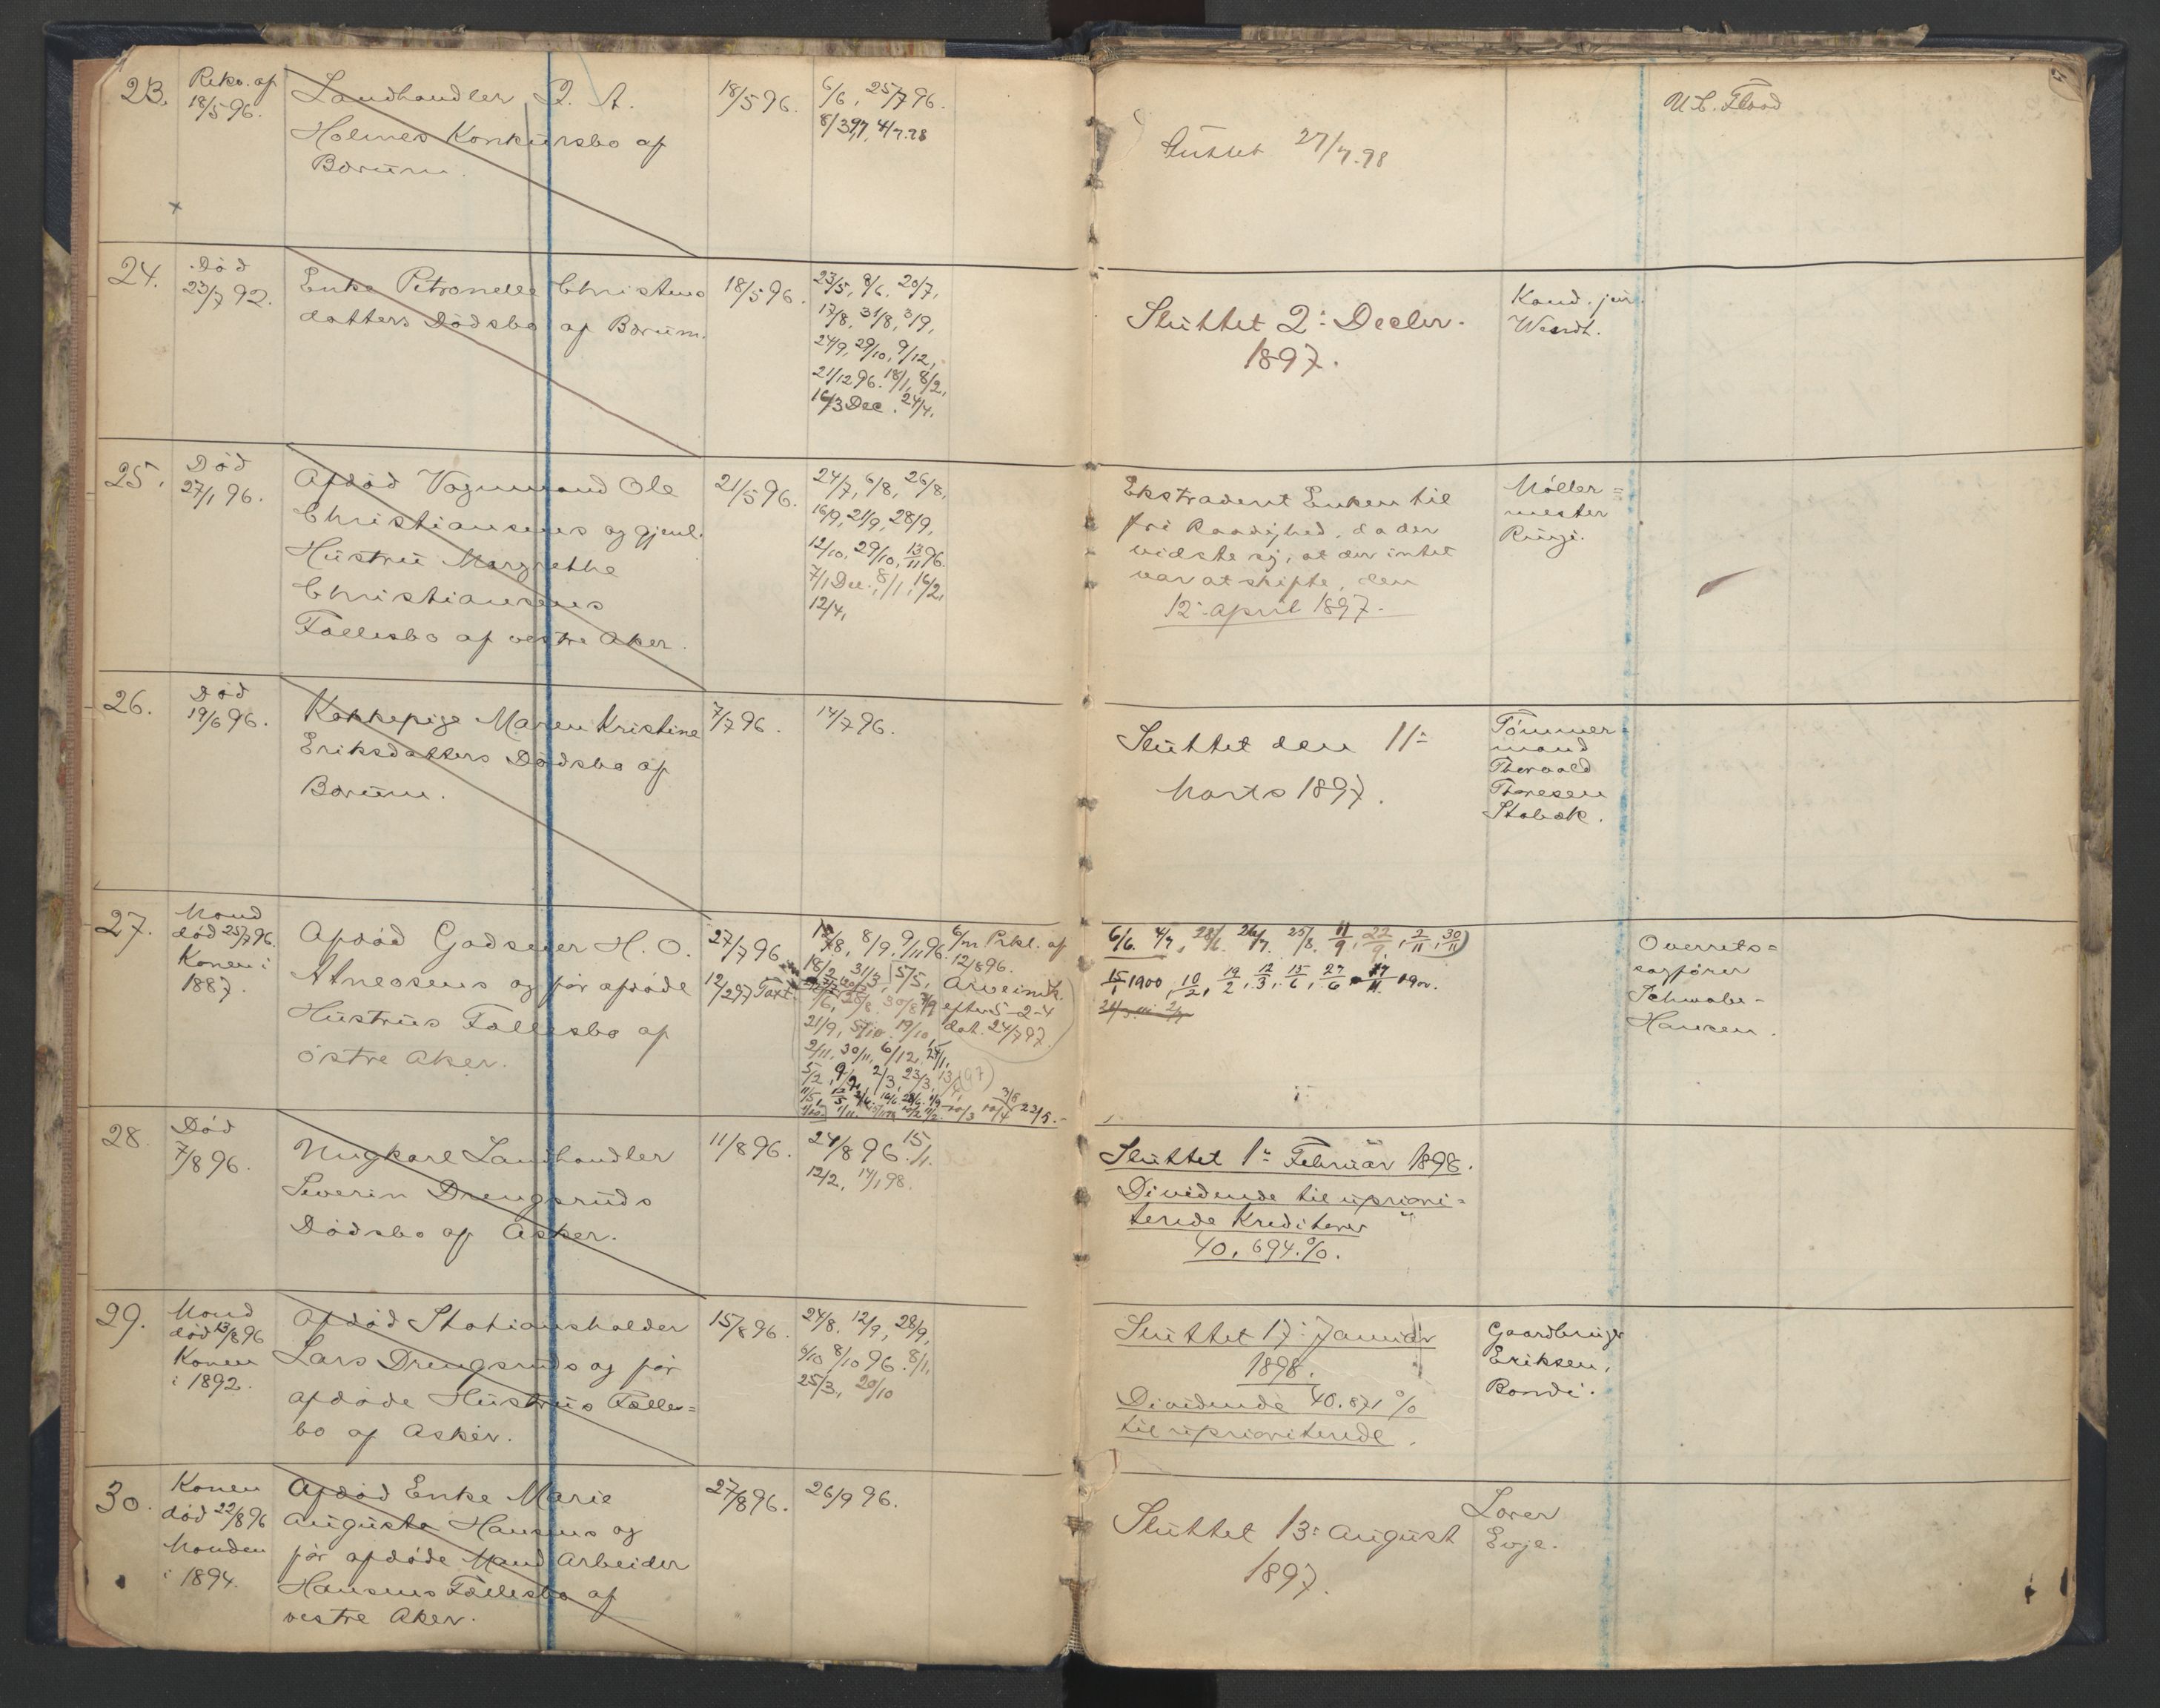 23.
Reko. af
18/5 96.
Landhandler
Holmes Konkursbo af
Bærum.
18/5 96.
6/6, 25/7 96.
Sluttet 27/7.98
24.
Død
23/7 92.
Enke Petronelle Christens
datters Dødsbo af Bærum.
18/5 96.
23/5, 8/6, 20/7,
17/8, 31/8, 3/9,
24/9, 29/10, 9/12,
21/12 96. 18/1, 8/2,
16/3 Dec. 24/4.
Sluttet 2: Decbr.
1897.
Kand. jur.
Wendt.
25.
Død
27/1 96.
Afdød Vognmand Ole
Christiansens og gjenl.
Hustru Margrethe
Christiansens
Fællesbo af vestre Aker.
21/5 96.
24/7, 6/8, 26/8,
16/9, 21/9, 28/9,
12/10, 29/10, 13/11 96.
7/1 Dec., 8/1, 16/2,
12/4,
Ekstradert Enken til
fri Raadighed, da der
vidste sig, at der intet
var at skifte, den
12: april 1897.
Møller=
mester
Ringi.
26.
Død
19/6 96.
Kokkepige Maren Kristine
Eriksdatters Dødsbo af
Bærum.
7/7 96.
14/7 96.
Sluttet den 11:
Marts 1897.
Tømmer
mand
Thorvald
Thoresen
Stabæk.
27.
Mand
død 25/7 96.
Konen i
1887.
Afdød Gadseier H. O.
Atneosens og før afdøde
Hustrus Fællesbo af
østre Aker.
27/7 96
12/2 97 Taxt.
8/9. 9/11 96.
Prkl. af
12/8 96.
31/3, 5/5,
efter 5-2-4
dat. 24/7 97.
21/9, 5/10. 19/10,
2/11, 30/11, 6/12,
5/2, 2/3, 23/3,
6/6. 4/7, 28/6. 26/7. 25/8. 11/9, 22/9, 2/11, 30/11)
15/1 1900, 10/2, 19/2, 12/3, 15/6, 27/6
Overrets=
sagfører
Schwabe-
Hansen.
28.
Død
7/8 96.
Ungkarl Landhandler
Severin Drengsruds
Dødsbo af Asker.
11/8 96.
24/8 96. 15/1.
12/2, 14/1 98.
Sluttet 1: Februar 1898.
Dividende til upriori=
terede Kreditorer
40,694 %.
29.
Mand
død 13/8 96
Konen
i 1892.
Afdød Stationsholder
Lars Drengsruds og før
afdøde Hustrus Fælles=
bo af Asker.
15/8 96.
24/8. 12/9, 28/9,
6/10 8/10 96. 8/1,
25/3, 20/10
Sluttet 17: Januar
1898.
Dividende 40.871 %
til uprioriterede.
Gaardbruger
Eriksen,
Bondi.
30.
Konen
død 22/8 96
Manden
i 1894.
Afdød Enke Marie
Augusta Hansens og
før afdøde Mand Arbeider
Hansens Fællesbo af
vestre Aker.
27/8 96.
26/9 96.
Sluttet 13: August
1897.
Evje.